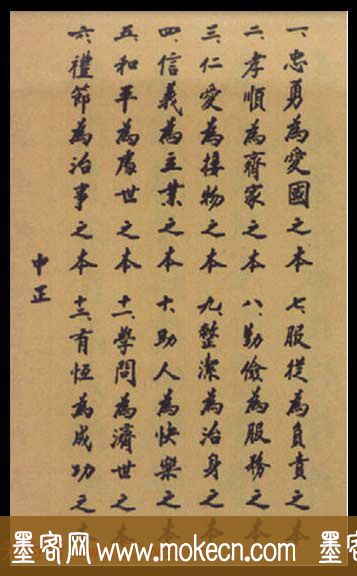 一、忠勇為愛國之本
二、孝順為齊家之本
三、仁愛為接物之本
四、信義為立業之本
五、和平為處世之本
六、禮節為治事之本
七、服從為負責之本
八、勤儉為服務之本
九、整潔為治身之本
十、助人為快樂之本
十一、學問為濟世之本
十二、有恆為成功之
中正
墨客网 www.mokecn.com 墨客